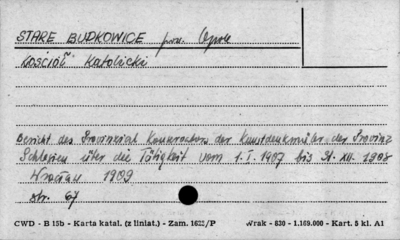 STARE BUDKOWICE pow. Opole
Kościół Katolicki
Bericht des Provinzial Konservators der Kunstdenkmäler der Provinz
Schlesien über die Tätigkeit vom 1.I.1907 bis 31.XII.1908
Wrocław 1909
str. 67
CWD - B 15b - Karta katal. (z liniat.) - Zam. 1623/P Wrak - 630 - 1.169.000 - Kart. 5 kl. A1